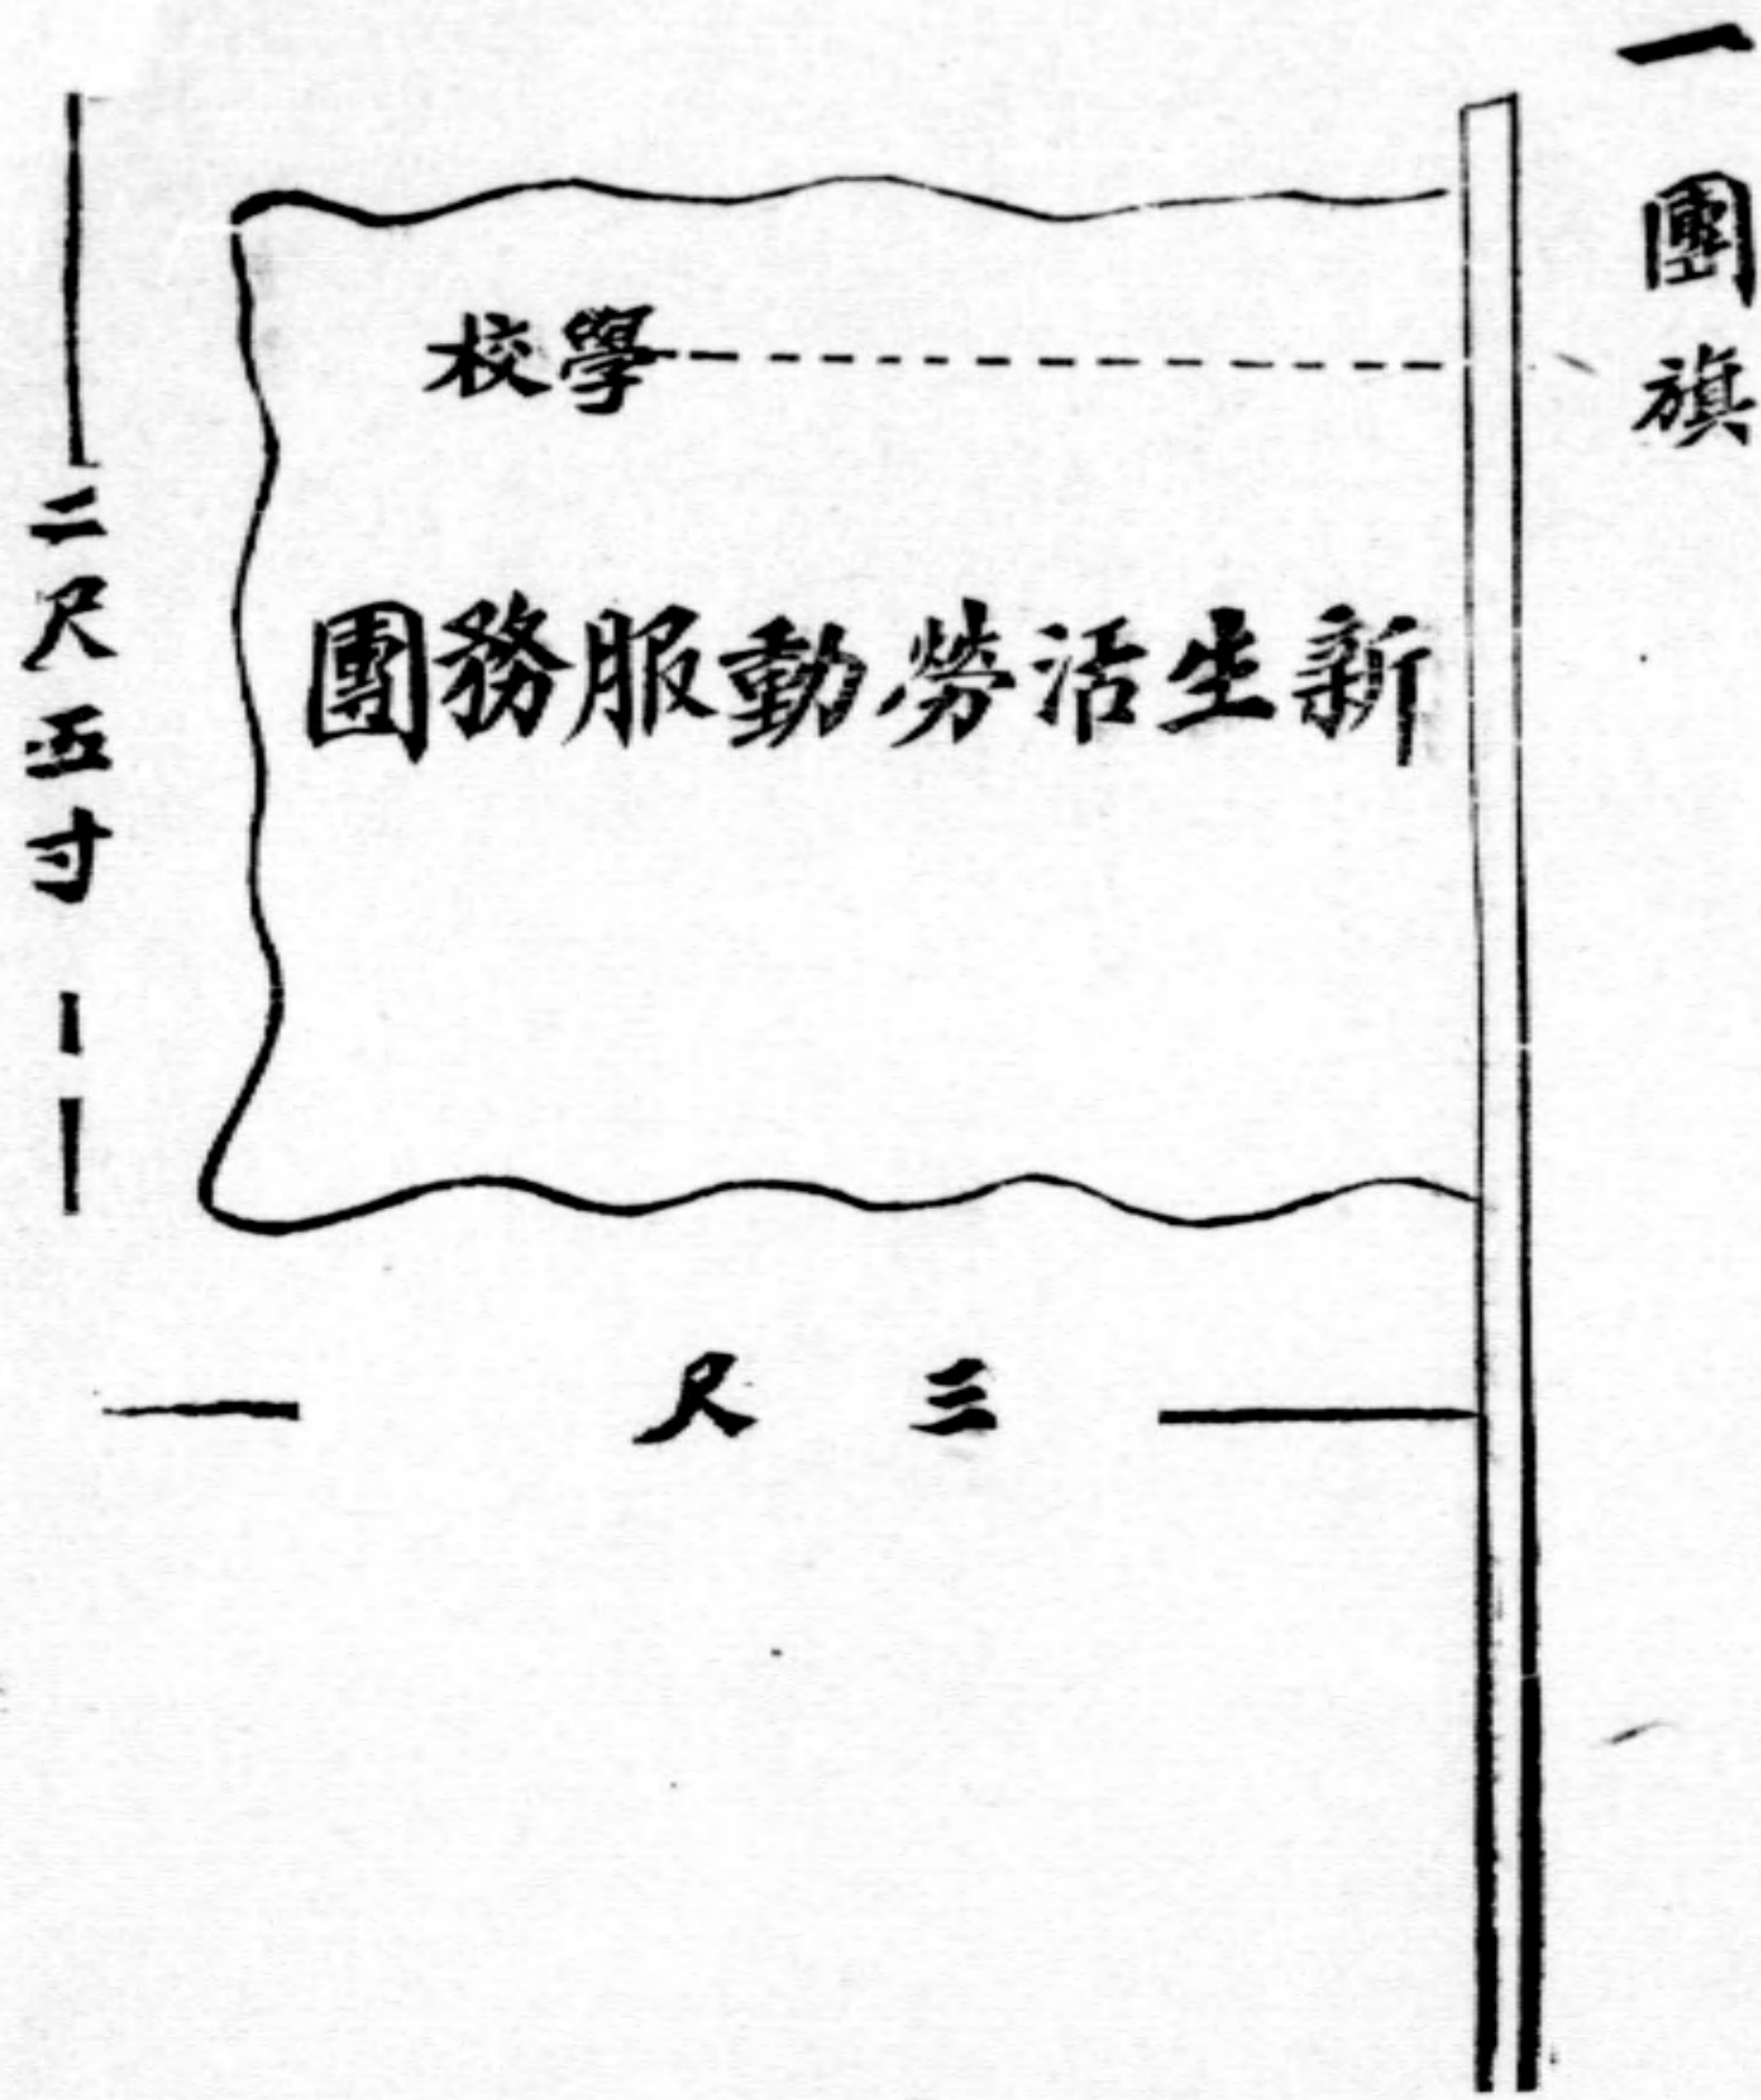 一 團旗
學校
新生活勞動服務團
二尺五寸
三尺